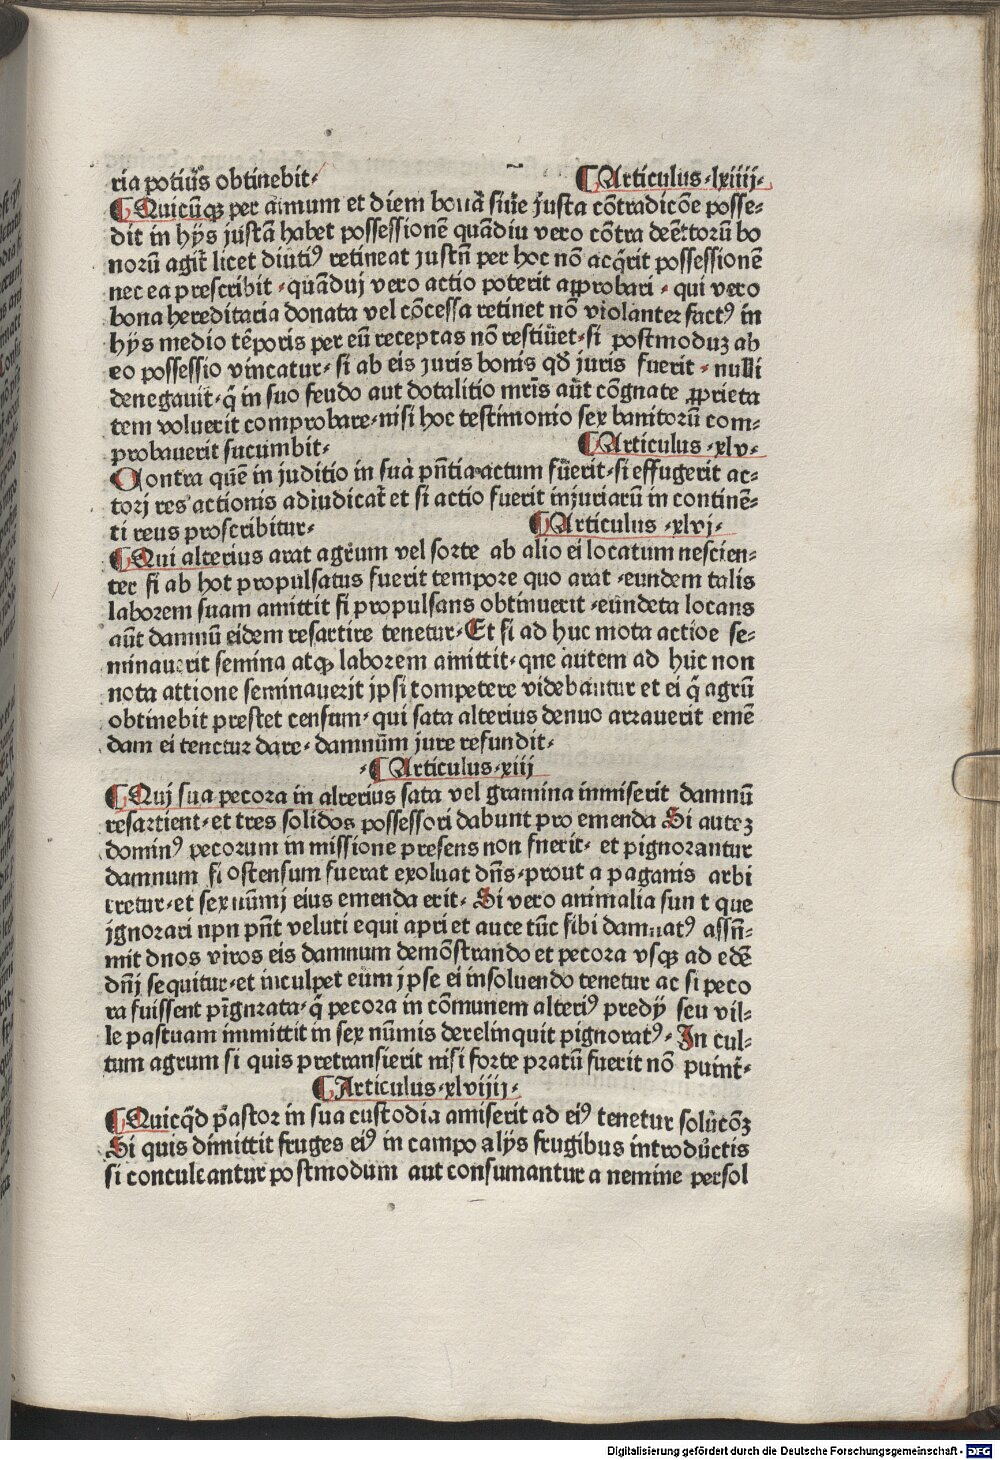 ria potius obtinebit· ¶ Articulus·lxiiij·
¶ Quicūqꝫ per annum et diem bona siue justa cōtradicōe posse-
dit in hijs justā habet possessionē quādiu vero cōtra deētorū bo
norū agit̄ licet diuti⁹ retineat justn̄ per hoc nō acq̄rit possessionē
nec ea prescribit · quāduj vero actio poterit aꝓrobari · qui vero
bona hereditaria donata vel cōcessa retinet nō violanter fact⁹ in
hijs medio tēporis per eū receptas nō restiūet·si postmoduꝫ ab
eo possessio vincatur·si ab eis juris bonis qd̄ juris fuerit · nulli
denegauit·q̄ in suo feudo aut dotalitio mr̄is aūt cōgnate ꝓprieta
tem voluerit comprobare·nisi hoc testimonio sex banitorū com-
probauerit sucumbit· ¶ Articulus ·xlv·
Contra quē in juditio in sua pn̄tia actum fuerit·si effugerit ac-
torj res actionis adiudicat̄ et si actio fuerit injuriarū in continē-
ti reus proscribitur· ¶ Articulus ·xlvj·
¶ Qui alterius arat agrum vel sorte ab alio ei locatum nescien-
ter si ab hot propulsatus fuerit tempore quo arat ·eundem talis
laborem suam amittit si propulsans obtinuerit ·eundeta locans
aūt damnū eidem resartire tenetur·Et si ad huc mota actioe se-
minauerit semina atqꝫ laborem amittit·qne autem ad huc non
nota attione seminauerit jpsi competere videbantur et ei q̄ agrū
obtinebit prestet censum·qui sata alterius denuo arrauerit emē
dam ei tenetur dare·damnum jure refundit·
·¶ Articulus·xiij
¶ Quj sua pecora in alterius sata vel gramina inmiserit damnū
resartient·et tres solidos possessori dabunt pro emenda Si auteꝫ
domin⁹ pecorum in missione presens non fnerit· et pignorantur
damnum si ostensum fuerat exoluat dn̄s·prout a paganis arbi
tretur·et sex nūmj eius emenda erit· Si vero animalia sun t que
jgnorari npn pn̄t veluti equi apri et auce tūc sibi damnat⁹ assn̄-
mit dnos viros eis damnum demōstrando et pecora vsqꝫ ad edē
dn̄j sequitur·et inculpet eum jpse ei insoluendo tenetur ac si peco
ra fuissent pign̄rata·q̄ pecora in cōmunem alteri⁹ predij seu vil-
le pastuam immittit in sex nūmis derelinquit pignorat⁹·In cul-
tum agrum si quis pretransierit nisi forte pratū fuerit nō puint̄·
¶ Articulus·xlviiij·
¶ Quicq̄d pastor in sua custodia amiserit ad ei⁹ tenetur solucōꝫ
Si quis dimittit fruges ei⁹ in campo alijs frugibus introductis
si conculcantur postmodum aut consumantur a nemine persol
Digitalisierung gefördert durch die Deutsche Forschungsgemeinschaft - DFG